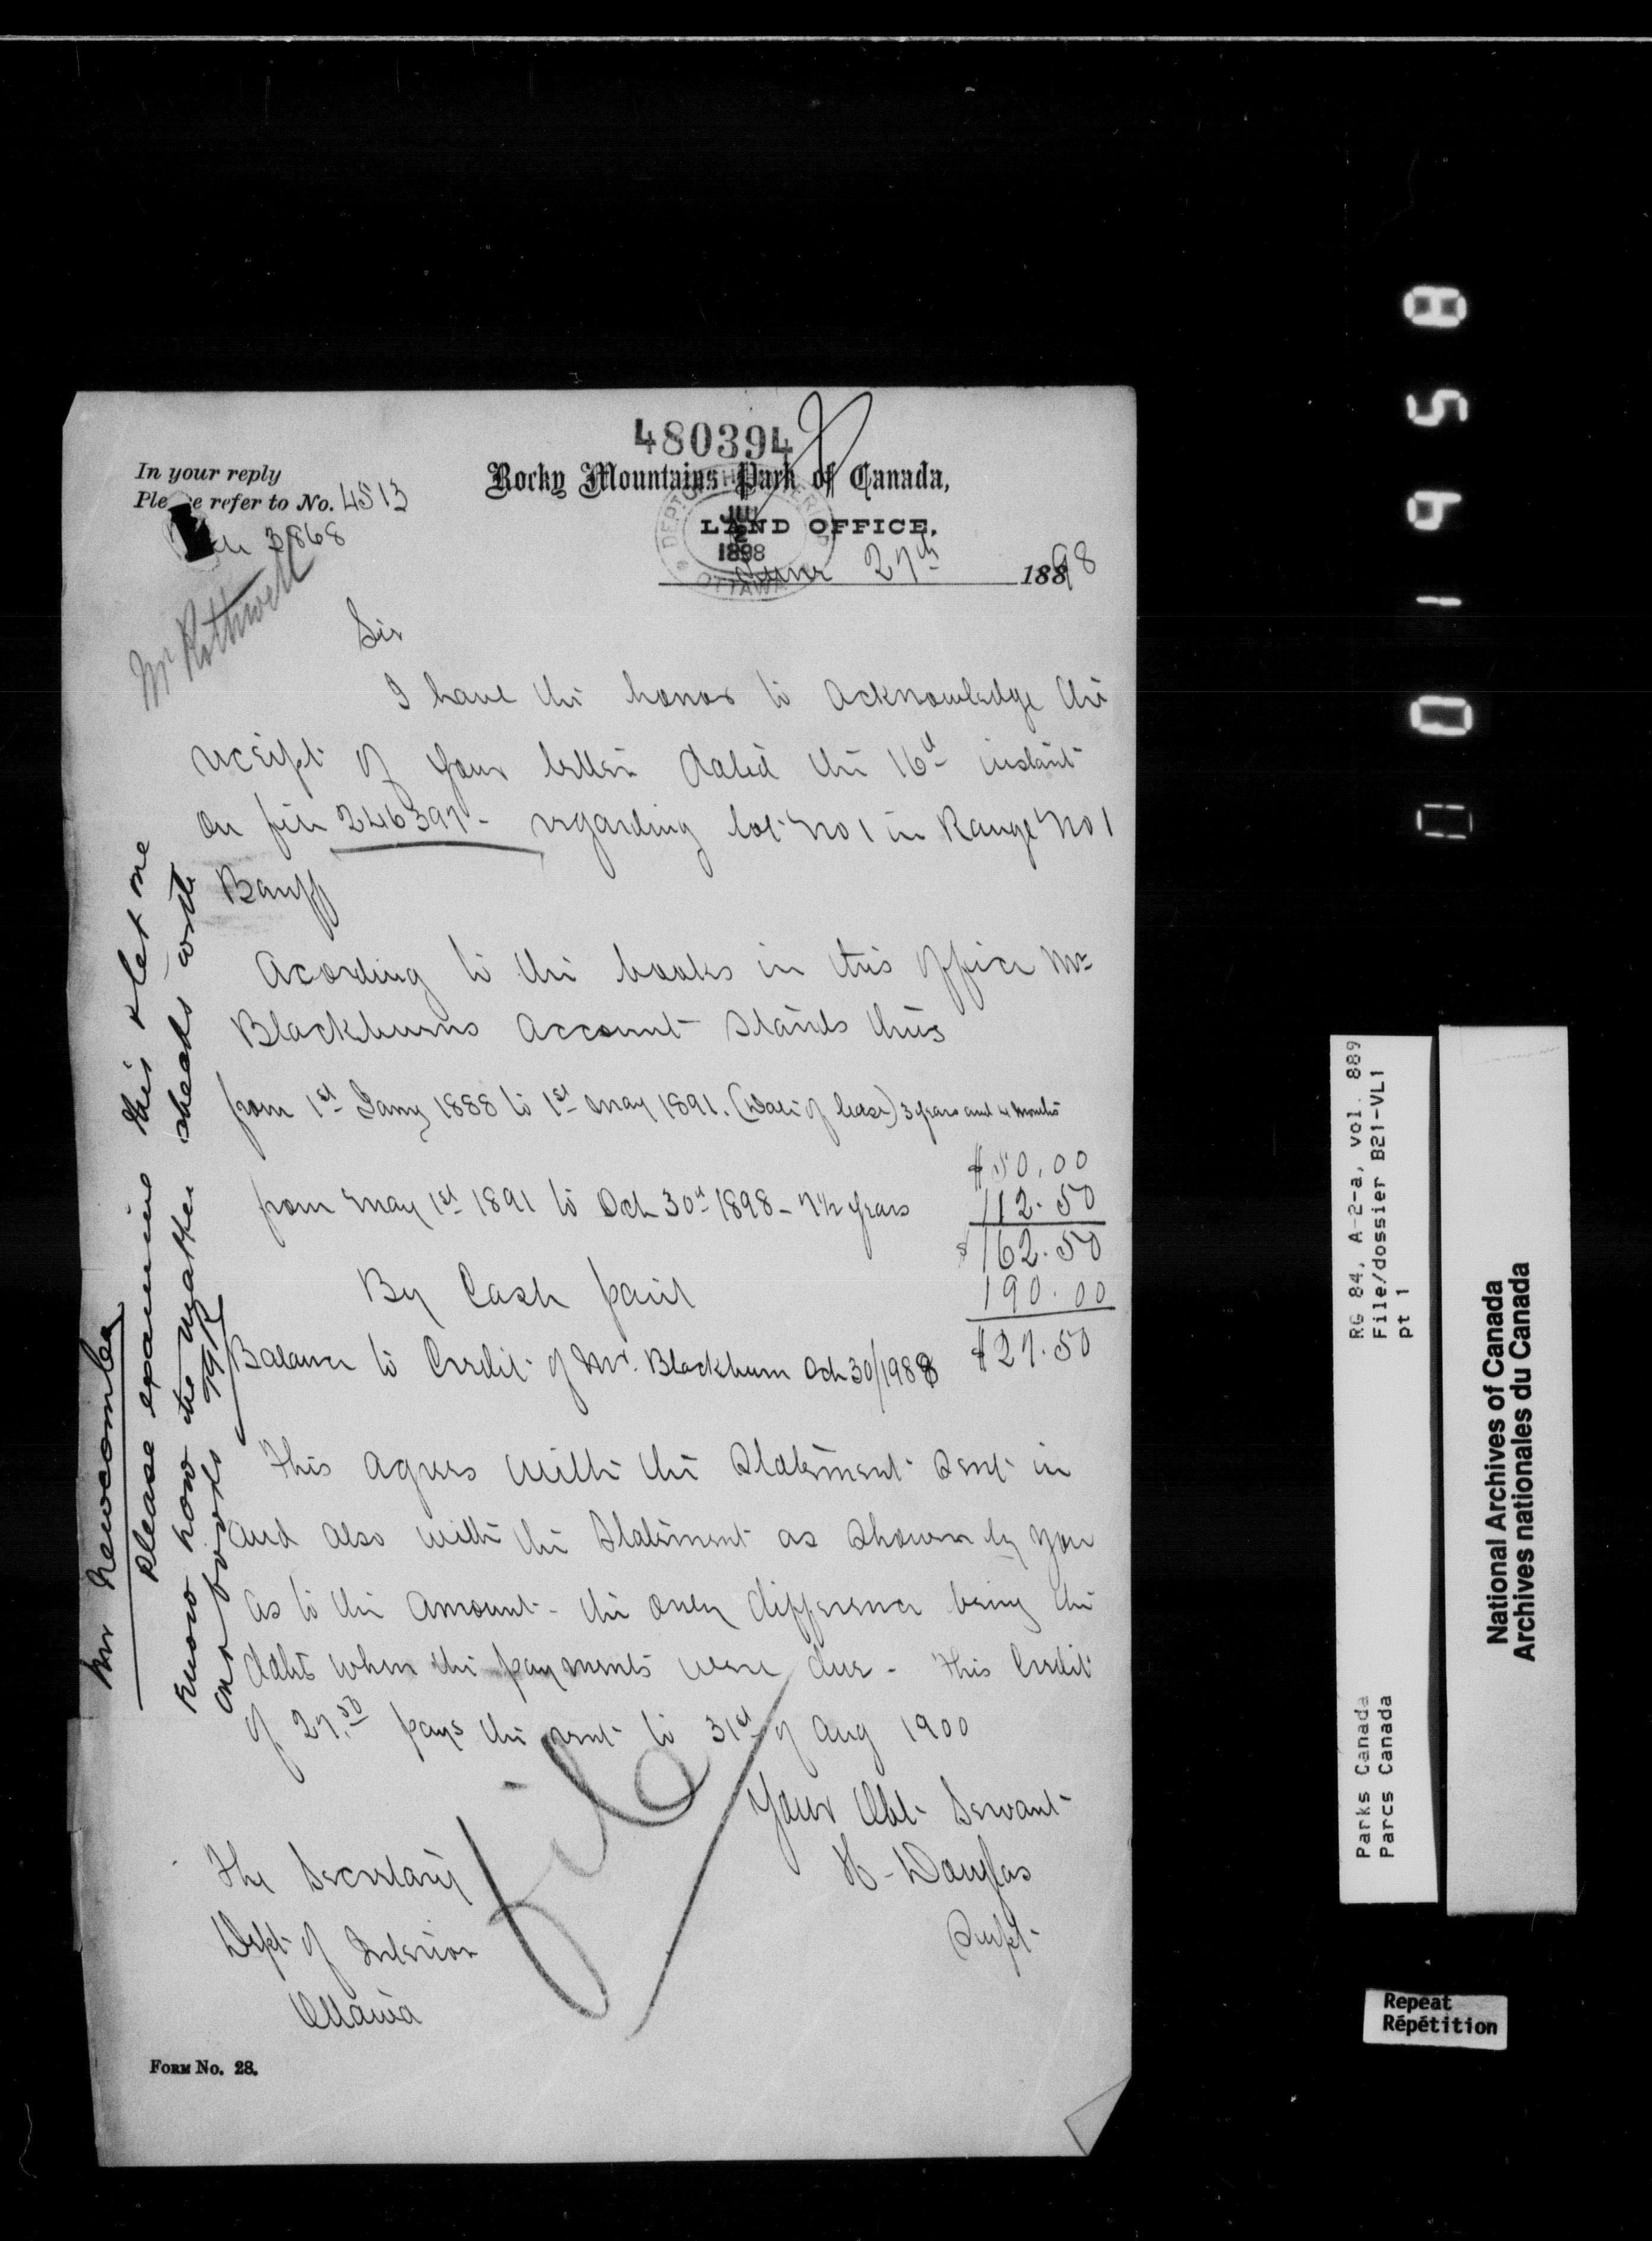 480394
In your reply
Please refer to No. 4513
3868
Rocky Mountains Park of Canada,
LAND OFFICE,
DEPT OF THE INTERIOR
JUL
2
1898
OTTAWA
June 27th 1898
Mr Rothwell
Sir
I have the honor to acknowledge the
receipt of your letter dated the 16th instant
on file 246397 - regarding lot No 1 in Range No 1
Banff
Acording to the books in this office Mr
Blackburns account stands thus
from 1st Jany 1888 to 1st May 1891. (Date of lease) 3 years and 4 months
$50.00
from May 1st 1891 to Oct 30th 1898 - 7 1/2 years 112.50
$162.50
By Cash paid 190.00
Balance to Credit of Mr. Blackburn Oct 30/1988 $27.50
This agrees with the Statement sent in
and also with the Statement as shown by you
as to the amount - the only difference being the
date when the payments were due - This Credit
of 27.50 pays the rent to 31st of Aug 1900
Your Obt Servant
H - Douglas
Supt
The Secretary
Dept of Interior
Ottawa
file
FORM No. 23.
Mr Newcombe
Please examine this & let me
know how the matter stands with
our books
RG 84, A-2-a, vol. 889
File/dossier B21-VL1
pt 1
Parks Canada
Parcs Canada
National Archives of Canada
Archives nationales du Canada
Repeat
Répétition
0 0 1 9 5 8